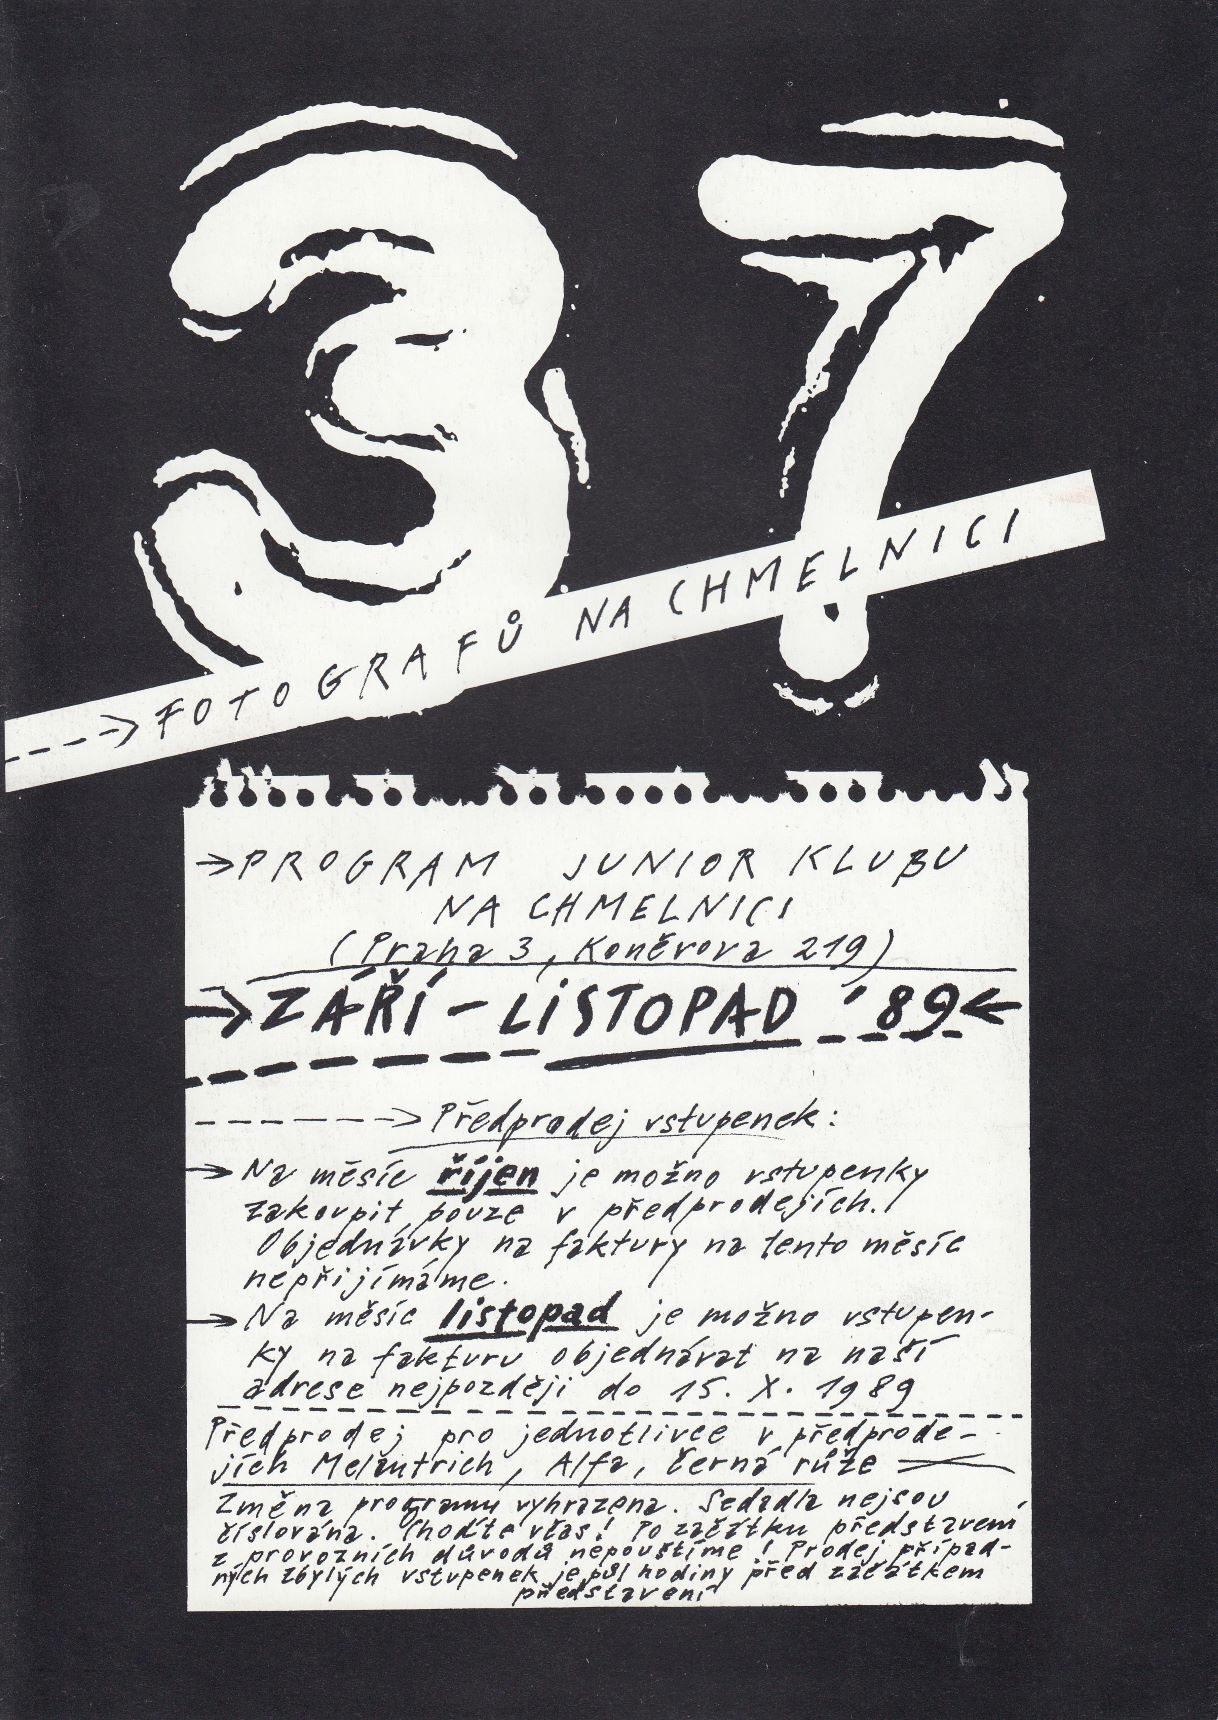 37
FOTOGRAFŮ NA CHMELNICI
→PROGRAM JUNIOR KLUBU
NA CHMELNICI
(Praha 3, Koněvova 219)
→ZÁŘÍ - LiSTOPAD '89←
Předprodej vstupenek:
→Na měsíc říjen je možno vstupenky
zakoupit pouze v předprodejích.
Objednávky na faktury na tento měsíc
nepřijímáme.
→Na měsíc listopad je možno vstupen-
ky na fakturu objednávat na naší
adrese nejpozději do 15. X. 1989
Předprodej pro jednotlivce v předprode-
jích Melantrich, Alfa, černá růže
Změna programu vyhrazena. Sedadla nejsou
číslována. Choďte včas! Po začátku představení
z provozních důvodů nepouštíme! Prodej případ-
ných zbylých vstupenek je půl hodiny před začátkem
představení